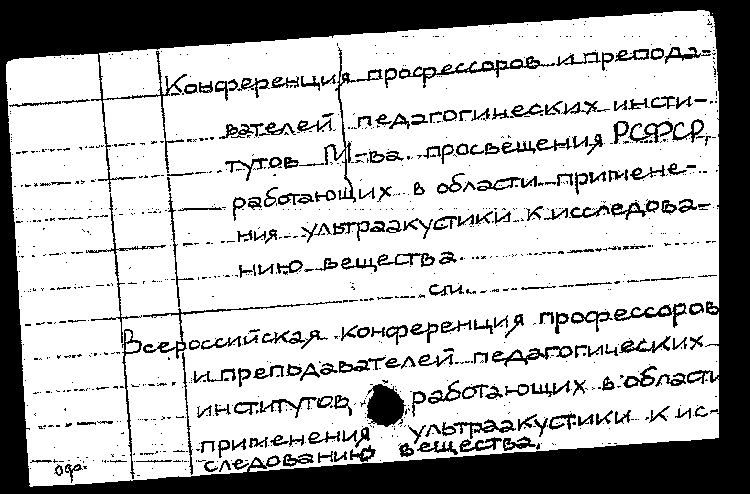 Конференция профессоров и препода-
вателей педагогических инсти-
тутов М-ва просвещения РСФСР,
работающих в области примене-
ния ультраакустики к исследова-
нию вещества
см.
Всероссийская конференция профессоров
и преподавателей педагогических
институтов, работающих в области
применения ультраакустики к ис-
следованию вещества.